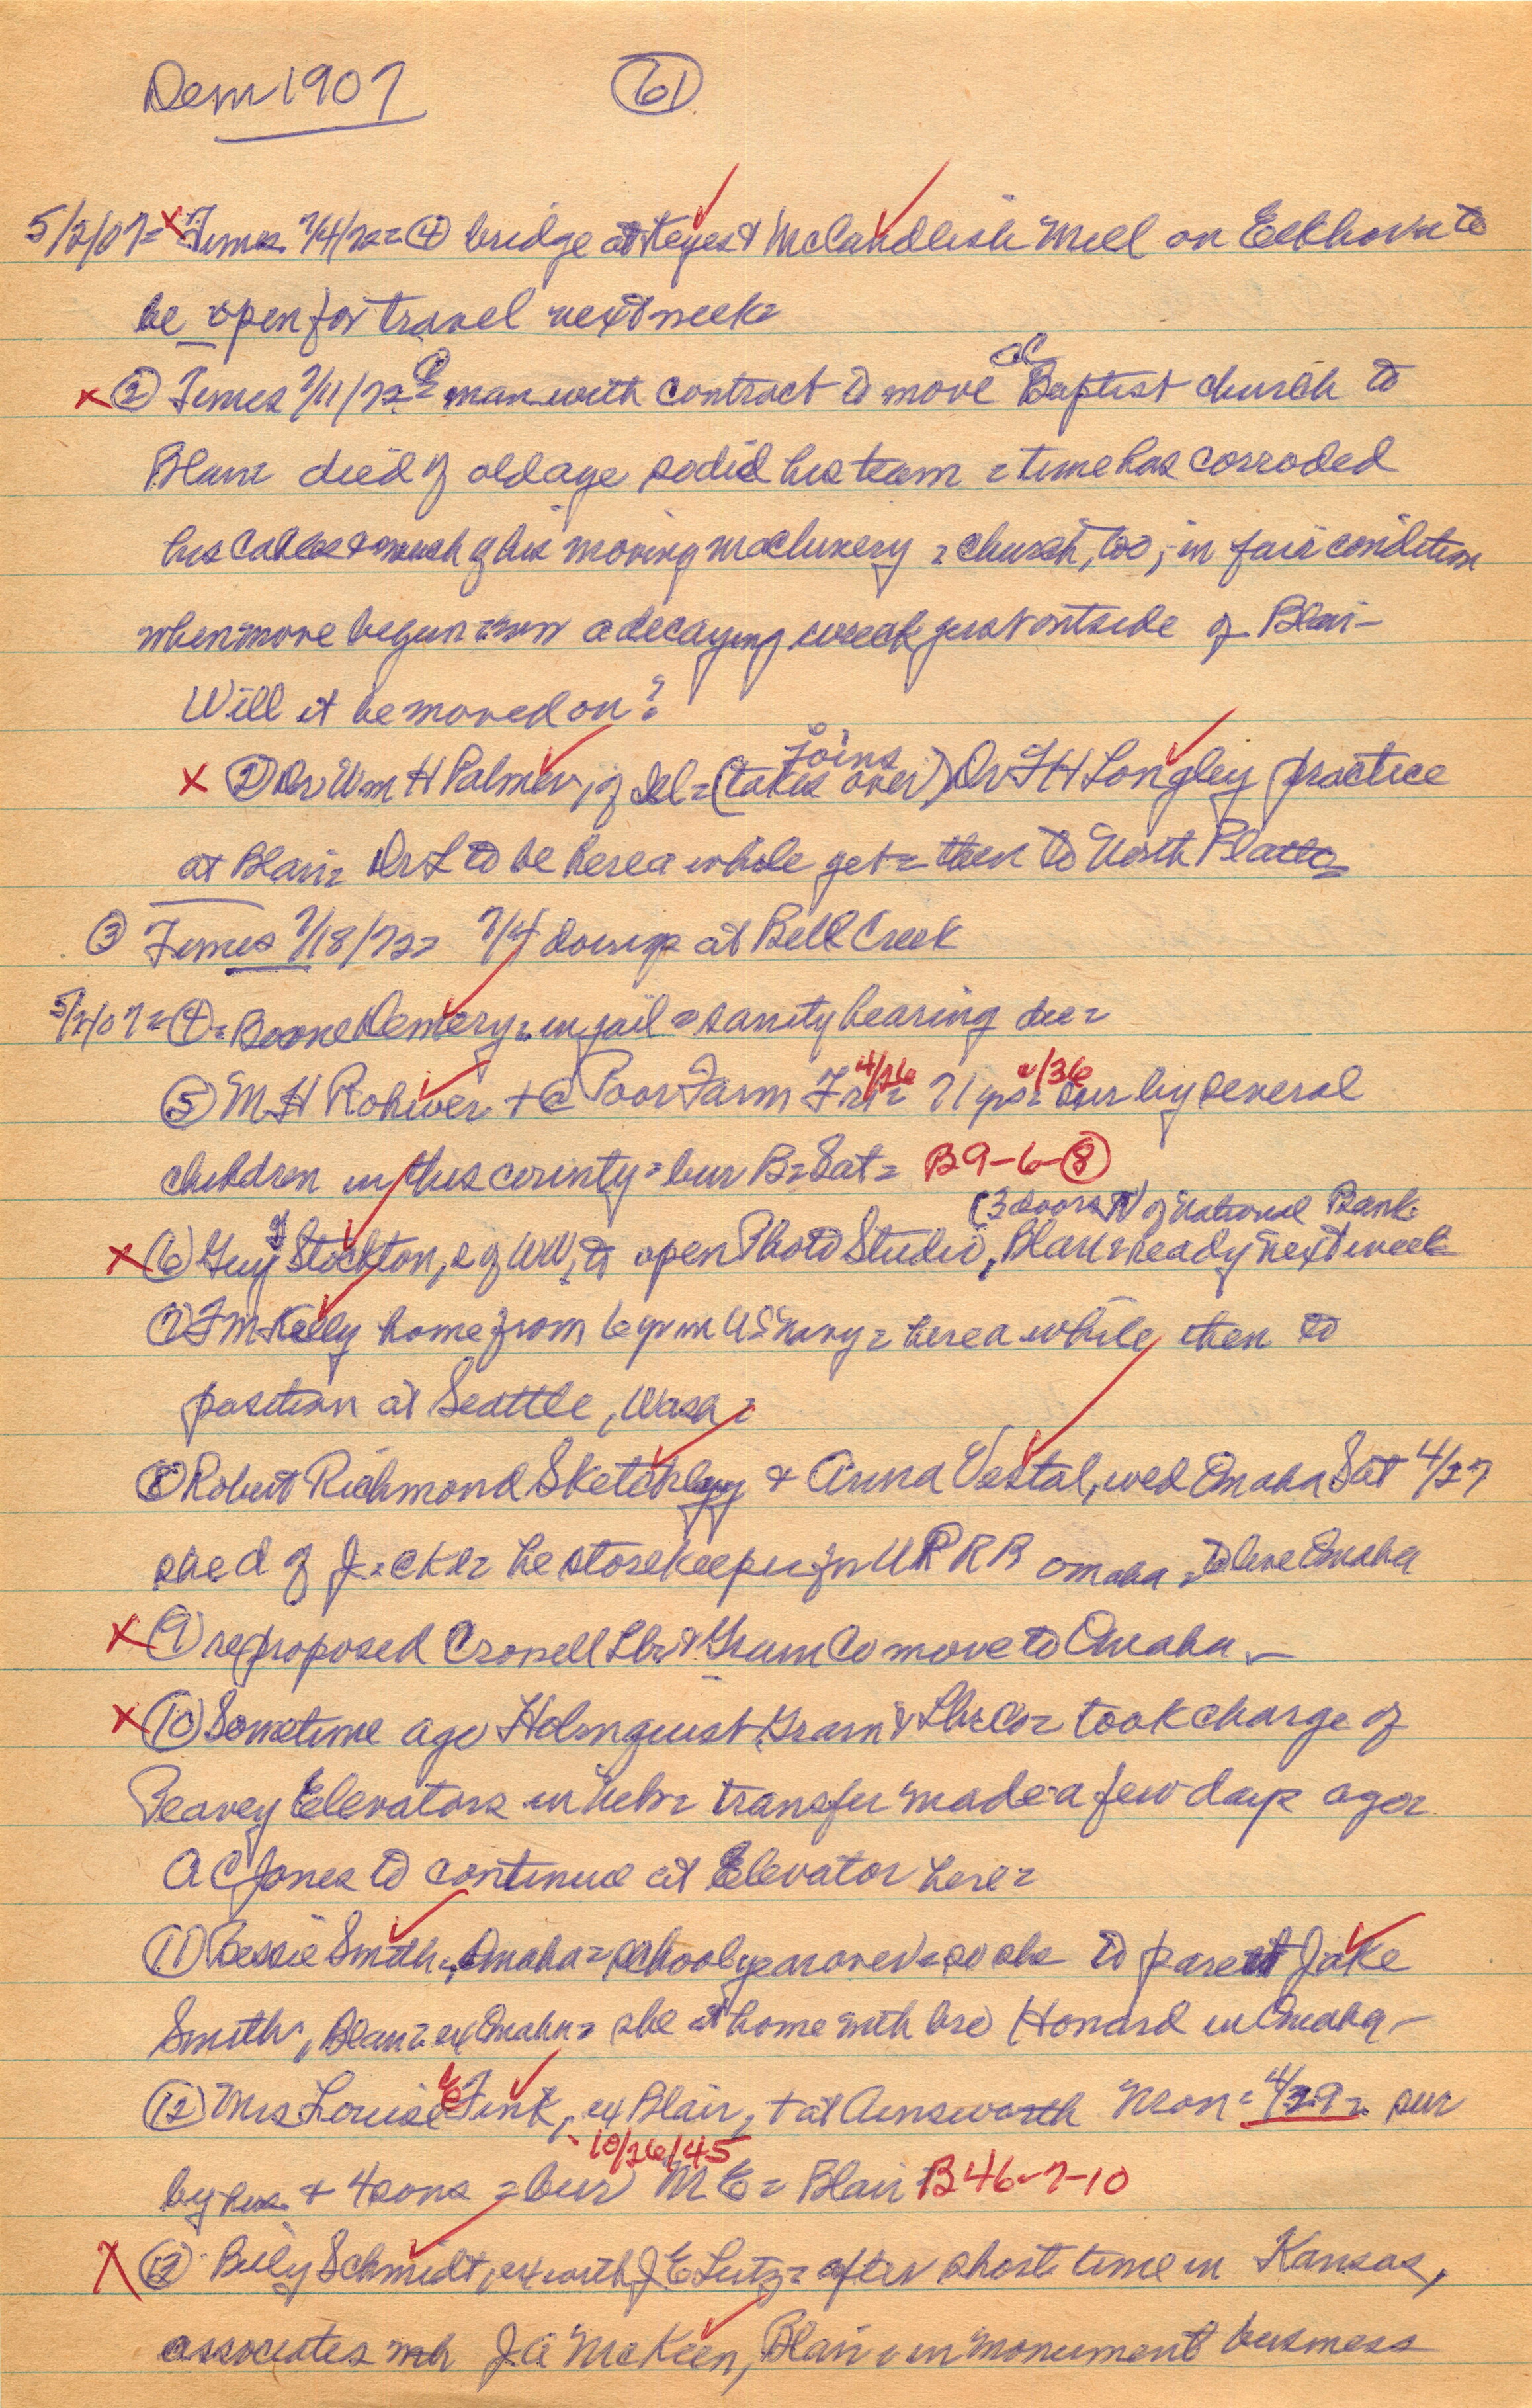 Dem 1907 61
5/2/07= x Times 7/4/72= ④ bridge at Keyes & McCandlish Mill on Elkhorn to
be open for travel next week=
x ② Times 7/11/72= man with contract to move Baptist church to
Blair died of old age so did his team = time has corroded
his cables & much of his moving machinery = church, too, in fair condition
when move begun = now a decaying wreck just outside of Blair -
Will it be moved on?
joins
x ② Dr Wm H Palmer, of Ill = (takes over) Dr F H Longley practice
at Blair= Dr L to be here a while yet = then to North Platte=
③ Times 7/18/72= 7/4 doings at Bell Creek
5/2/07 = ④ = Boone Demery = in jail = sanity hearing due =
4/26 1/36
⑤ M H Rohwer + @ Poor Farm Fri = 71 yrs = sur by several
children in this county = bur B = Sat = B9-6-⑧
(3 doors N of National Bank
x ⑥ Guy Stockton, s of WW, to open Photo Studio, Blair = ready next week
⑦ F M Kelly home from 6 yr in US Navy = here a while, then to
position at Seattle, Wash =
⑧ Robert Richmond Sketchley & Anna Vestal, wed Omaha Sat 4/27
she d of J = he storekeeper for UPRR Omaha = to live Omaha
x ⑨ re proposed Crowell Lbr & Grain Co move to Omaha -
x ⑩ Sometime ago Holmquist Grain & Lbr Co = took charge of
Peavey Elevators in Nebr = transfer made a few days ago =
A C Jones to continue at Elevator here =
⑪ Bessie Smith, Omaha = school year over = so she to parent Jake
Smith, Blair = ex Omaha = she at home with bro Howard in Omaha -
⑫ Mrs Louise E Fink, ex Blair, + at Ainsworth Mon = 4/29 = sur
10/26/45
by hus + 4 sons = bur M E = Blair B46-7-10
x ⑬ Billy Schmidt, ex with J E Lutz = after short time in Kansas,
associates with J A McKeen, Blair = in monument business